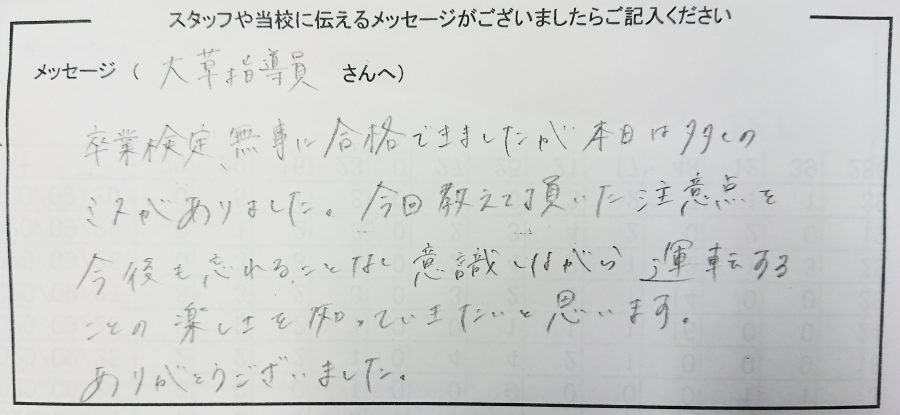 スタッフや当校に伝えるメッセージがございましたらご記入ください
メッセージ ( 大草指導員 さんへ)
卒業検定、無事に合格できましたが本日は多くの
ミスがありました。今回教えて頂いた注意点を
今後も忘れることなく意識しながら運転する
ことの楽しさを知っていきたいと思います。
ありがとうございました。